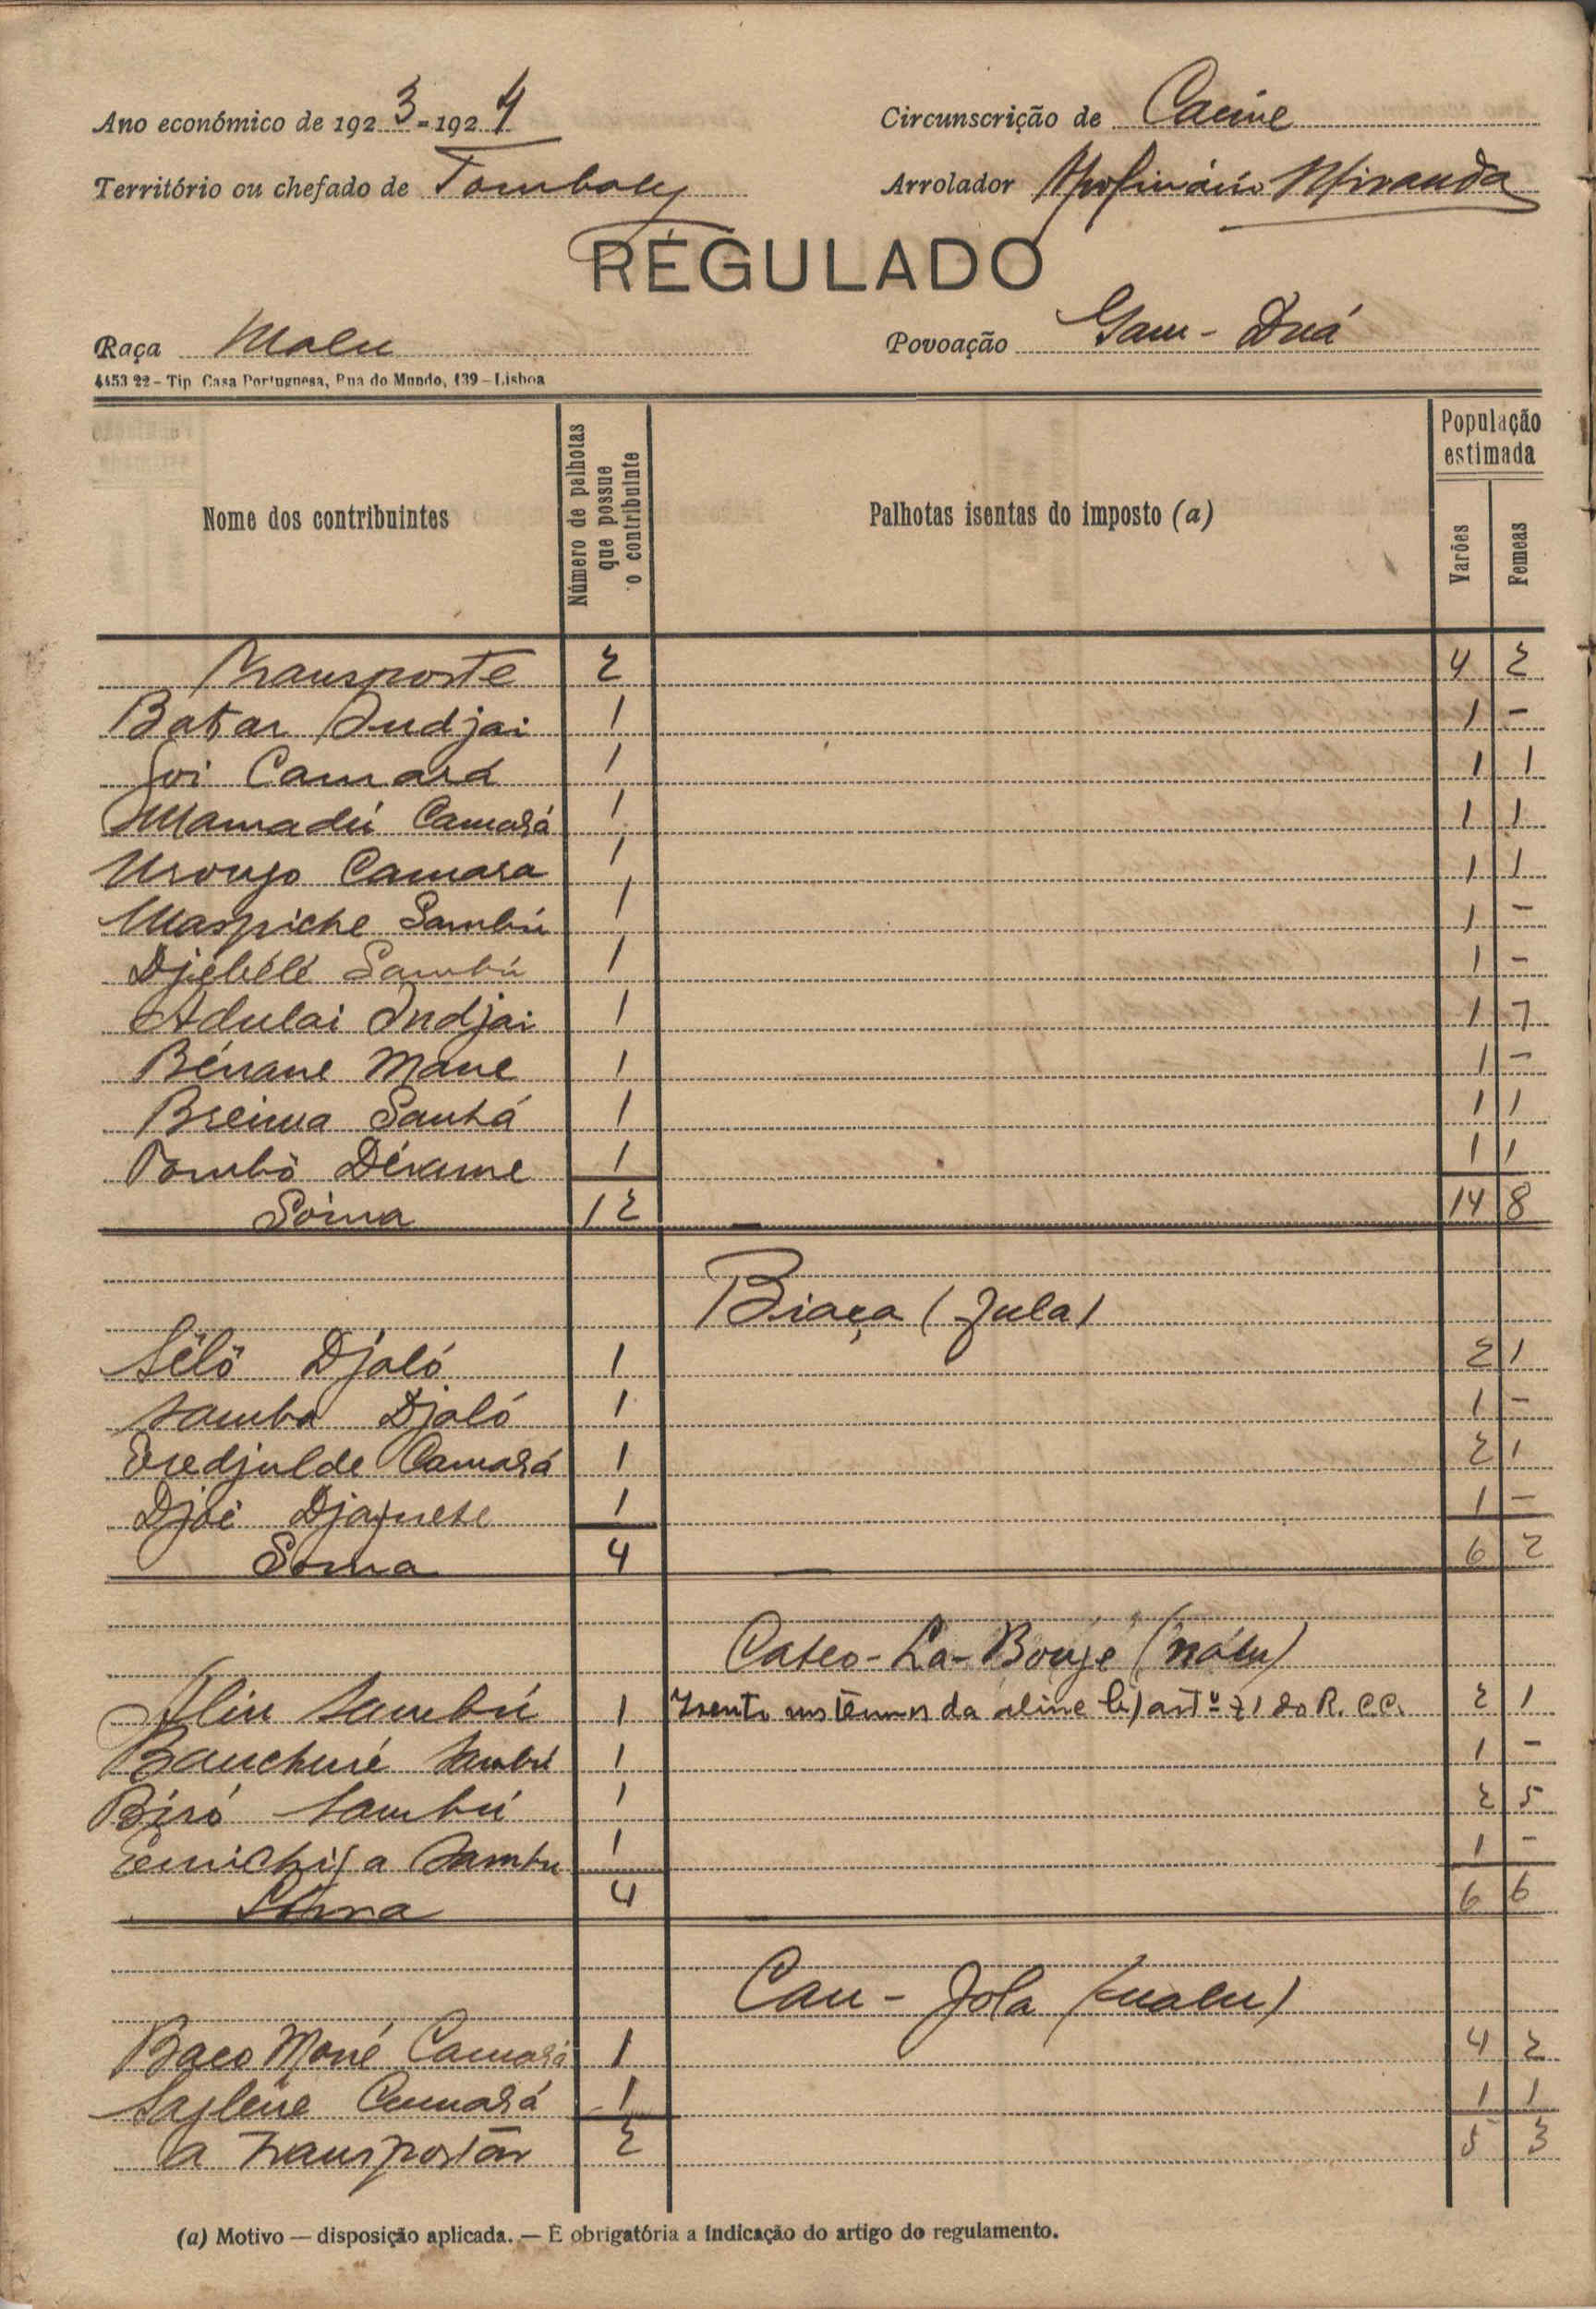 Ano económico de 1923-1924
Circunscrição de Cacine
Território ou chefado de Tombaly
Arrolador Apolinário Miranda
RÉGULADO
Raça Nalu
Povoação Gam-Duá
4453 22 – Tip Casa Portuguesa, Rua do Mundo, 139 – Lisboa
Nome dos contribuintes
Número de palhotas que possue o contribuinte
Palhotas isentas do imposto (a)
População estimada
Varões
Femeas
Transporte 2 4 2
Bakar Indjai 1 1 -
Soi Camará 1 1 1
Mamadú Camará 1 1 1
Camara 1 1 1
Sambú 1 1 -
Djébélé Sambú 1 1 -
Adulai Indjai 1 1 1
Mane 1 1 -
Breima Sanhá 1 1 1
Tombô Dérame 1 1 1
Sôma 12 — 14 8
Biaça (Fula)
Sêlô Djaló 1 2 1
Samba Djaló 1 1 -
Camará 1 2 1
Djaé 1 1 -
Soma 4 — 6 2
(nalu)
Aliu Sambú 1 Isento nos têrmos da aline b) artº 21 do R. C.C. 2 1
Sambú 1 1 -
Biró Sambú 1 2 5
Sambu 1 1 -
Sôma 4 6 6
Cau-Jola (nalu)
Baco Mané Camará 1 4 2
Camará 1 1 1
a transportar 2 5 3
(a) Motivo — disposição aplicada. — É obrigatória a indicação do artigo do regulamento.